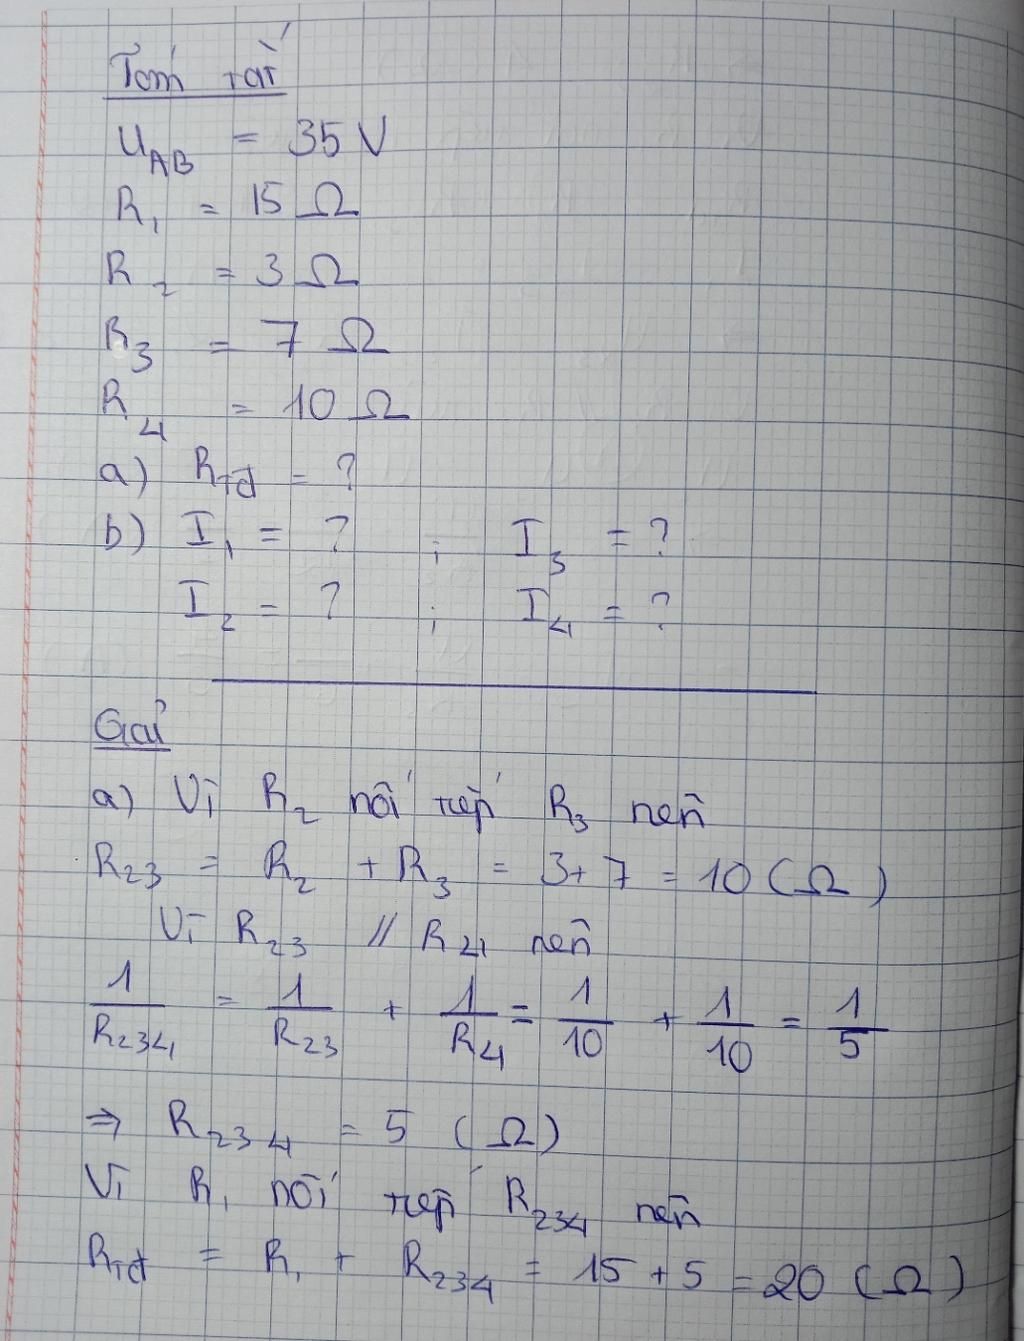 Tóm tắt
U_AB = 35 V
R₁ = 15 Ω
R₂ = 3 Ω
R₃ = 7 Ω
R₄ = 10 Ω
a) R_TĐ = ?
b) I₁ = ? ; I₃ = ?
I₂ = ? ; I₄ = ?
Giải
a) Vì R₂ nối tiếp R₃ nên
R₂₃ = R₂ + R₃ = 3+7 = 10 (Ω)
Vì R₂₃ // R₄ nên
1/R₂₃₄ = 1/R₂₃ + 1/R₄ = 1/10 + 1/10 = 1/5
⇒ R₂₃₄ = 5 (Ω)
Vì R₁ nối tiếp R₂₃₄ nên
R_tđ = R₁ + R₂₃₄ = 15 + 5 = 20 (Ω)